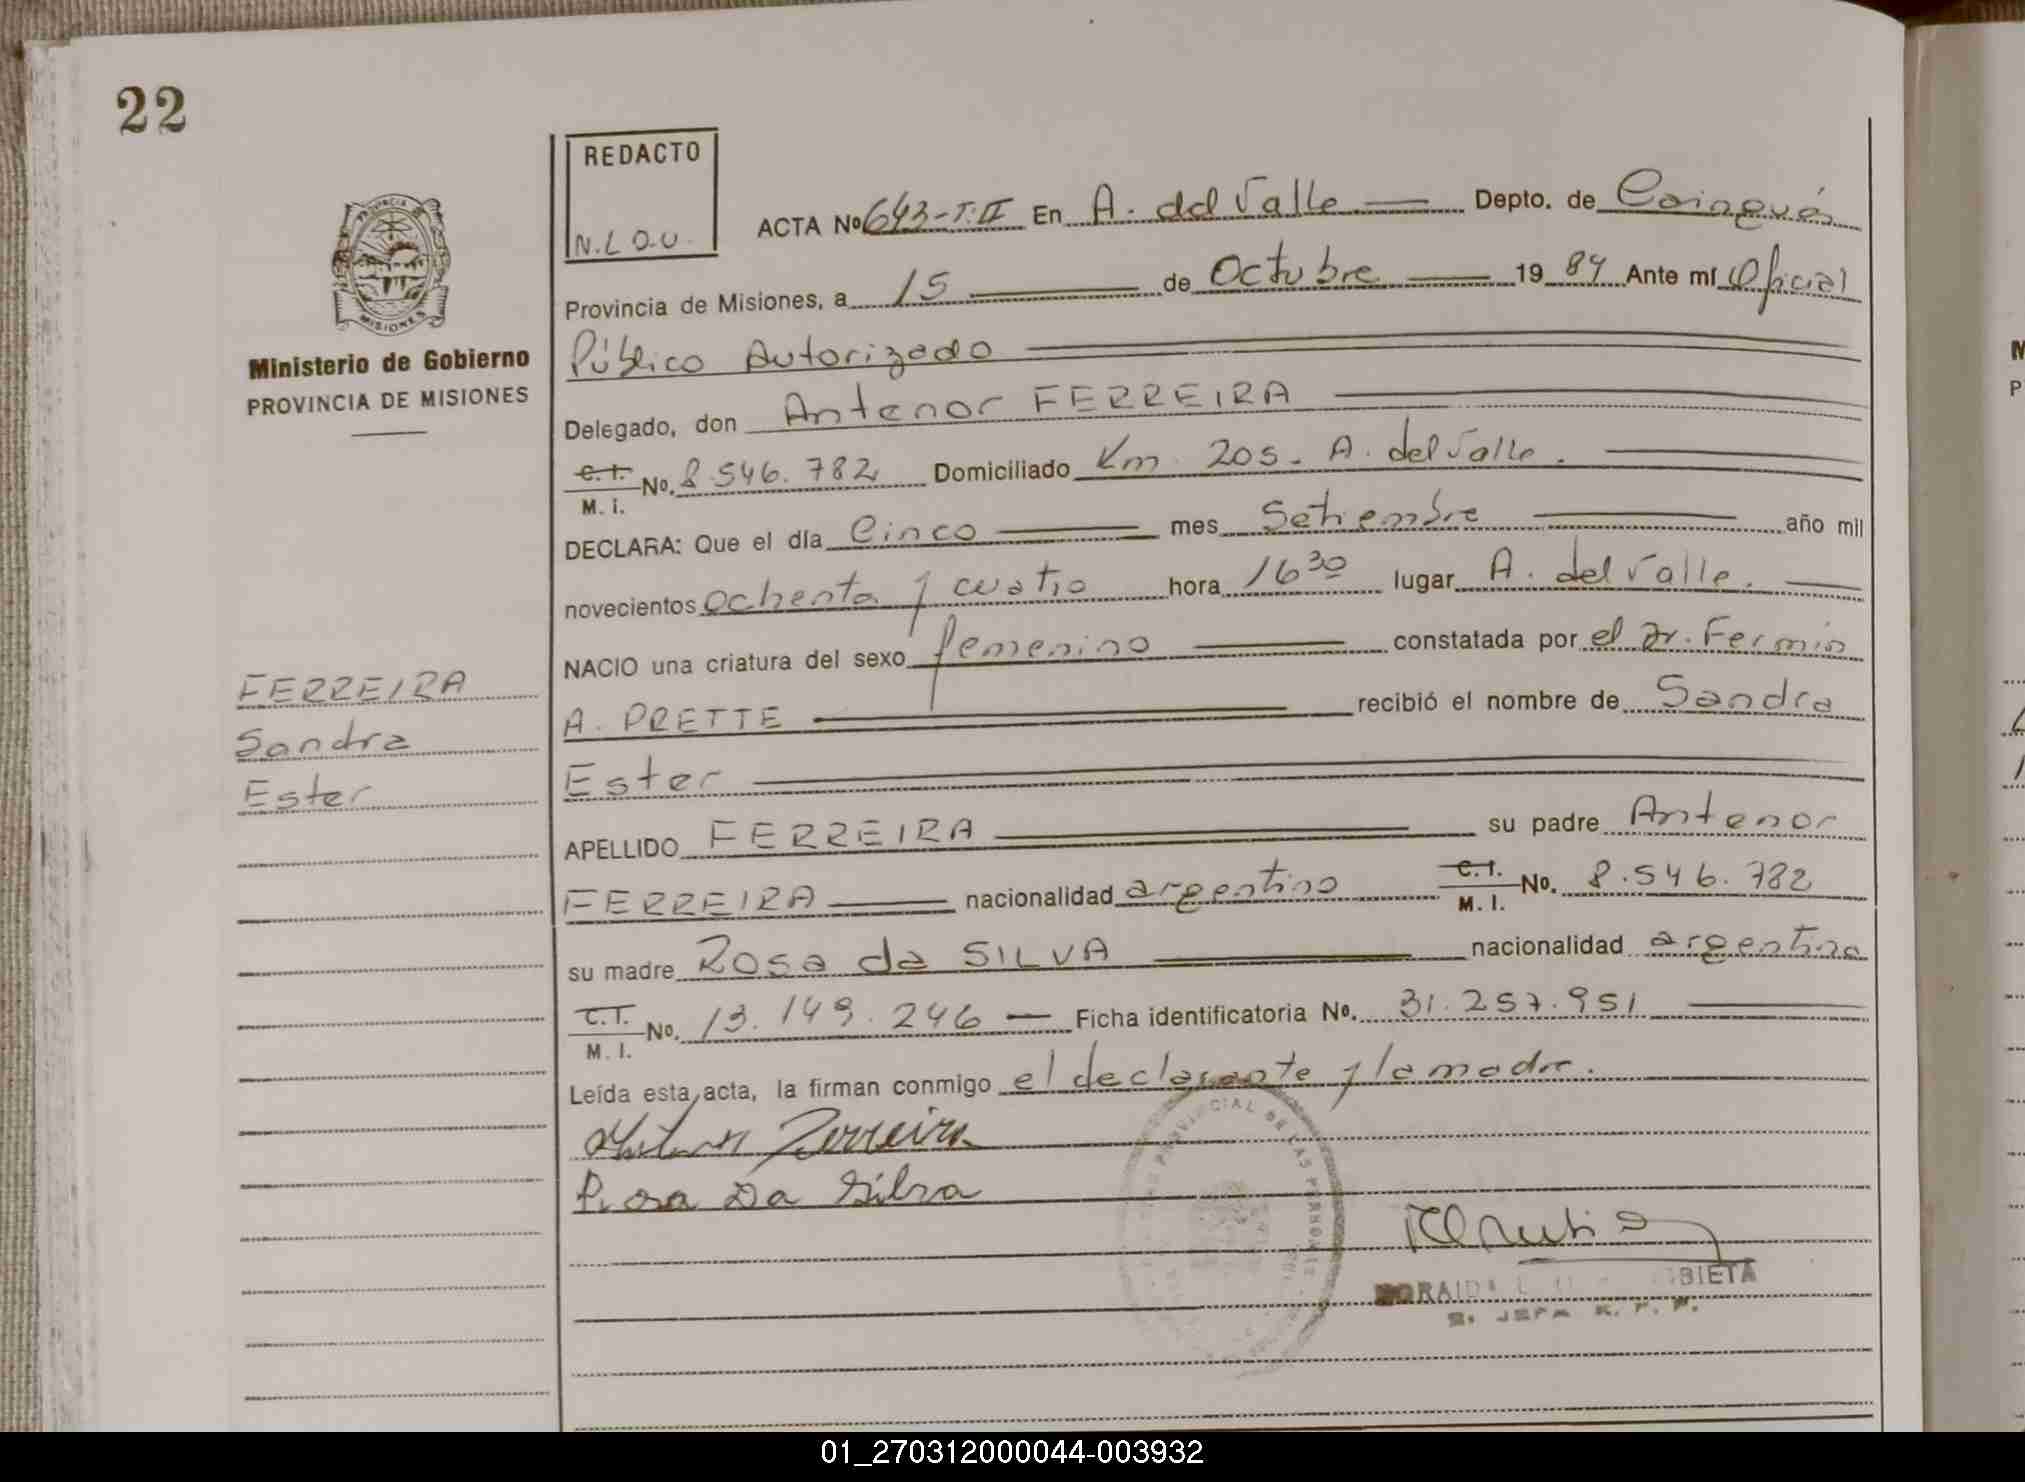 22
REDACTO
N.L.O.U.
ACTA Nº 643-T.II En A. del Valle Depto. de Cainguás
Provincia de Misiones, a 15 de Octubre 1984 Ante mí Oficial
Público Autorizado
Delegado, don Antenor FERREIRA
C.I. M.I. No. 8.546.782 Domiciliado Km. 205. A. del Valle.
DECLARA: Que el día Cinco mes Setiembre año mil
novecientos ochenta y cuatro hora 16 30 lugar A. del Valle.
NACIO una criatura del sexo femenino constatada por el Dr. Fermín
A. PRETTE recibió el nombre de Sandra
Ester
APELLIDO FERREIRA su padre Antenor
FERREIRA nacionalidad argentino C.I. M.I. No. 8.546.782
su madre Rosa da SILVA nacionalidad argentina
C.I. M.I. No. 13.149.246 Ficha identificatoria No. 31.257.951
Leída esta acta, la firman conmigo el declarante y la madre.
Ferreira
Rosa Da Silva
PROVINCIAL DE LAS PERSONAS
PROVINCIA DE
MISIONES
Ministerio de Gobierno
PROVINCIA DE MISIONES
FERREIRA
Sandra
Ester
01_270312000044-003932